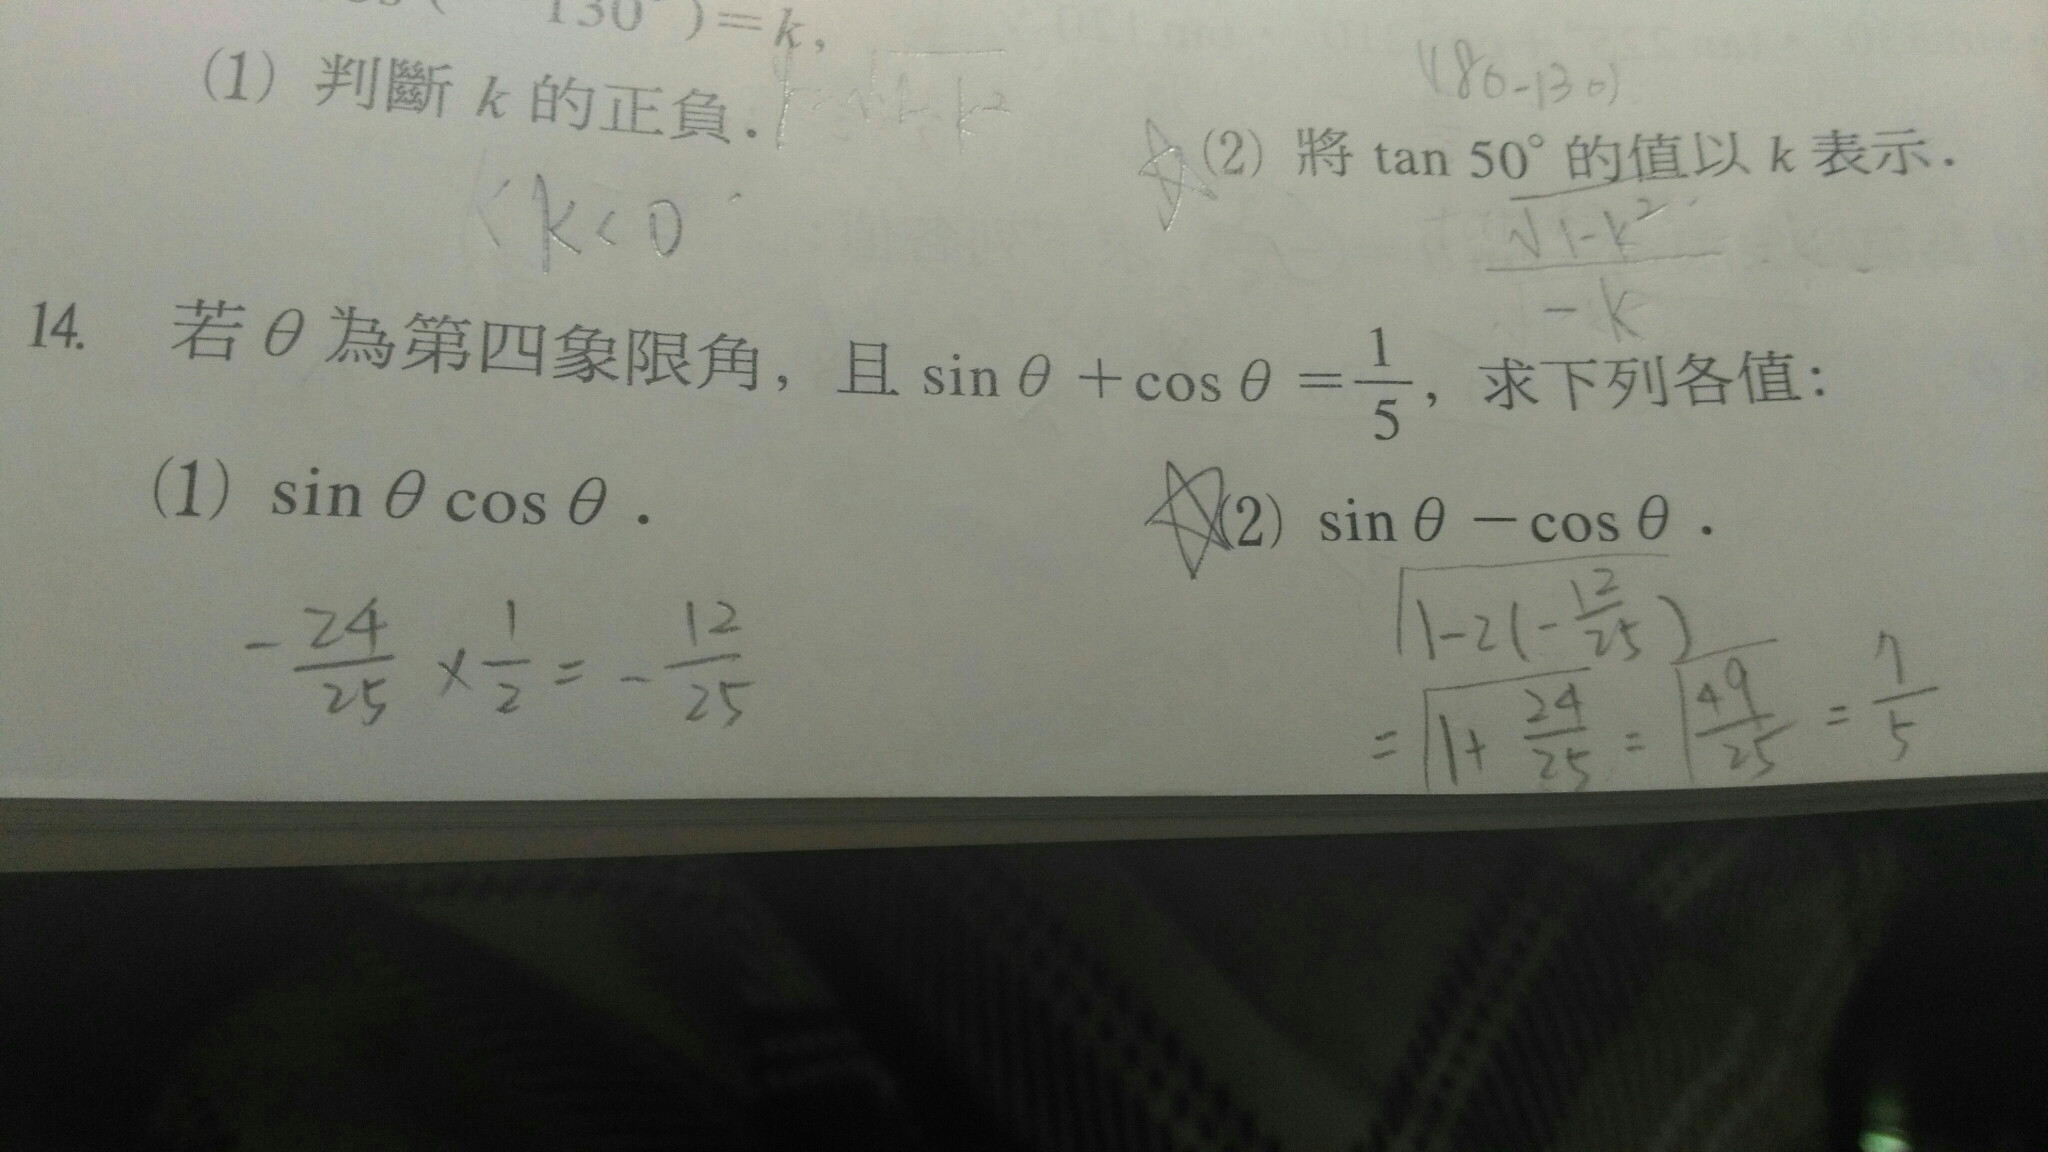 130°)=k,
(1) 判斷 k 的正負.
(180-130)
(2) 將 tan 50° 的值以 k 表示.
k<0
√1-k²
-k
14. 若 θ 為第四象限角, 且 sin θ +cos θ =1/5, 求下列各值:
(1) sin θ cos θ .
(2) sin θ -cos θ .
-24/25 × 1/2 = -12/25
√1-2(-12/25)
= √1+24/25 = √49/25 = 7/5